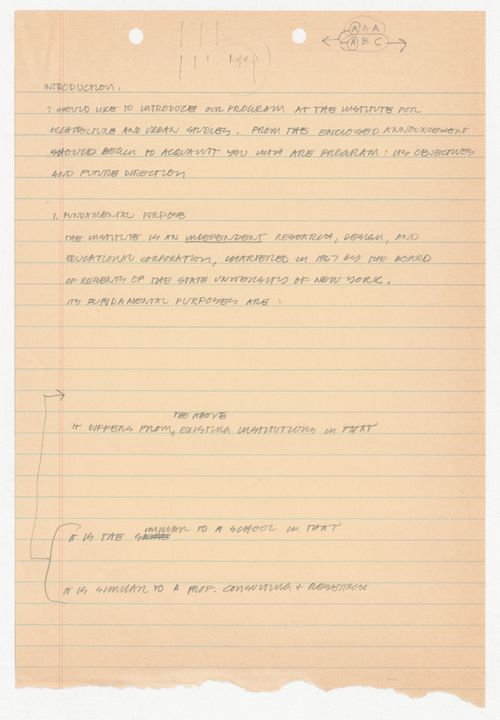 A A A
A B C
INTRODUCTION.
I SHOULD LIKE TO INTRODUCE OUR PROGRAM AT THE INSTITUTE FOR
ARCHITECTURE AND URBAN STUDIES. FROM THE ENCLOSED ANNOUNCEMENT
SHOULD BEGIN TO ACQUAINT YOU WITH ARE PROGRAM: ITS OBJECTIVES
AND FUTURE DIRECTION
1. FUNDAMENTAL PURPOSE
THE INSTITUTE IS AN INDEPENDENT RESEARCH, DESIGN, AND
EDUCATIONAL CORPORATION, CHARTERED IN 1967 BY THE BOARD
OF REGENTS OF THE STATE UNIVERSITY OF NEW YORK.
ITS FUNDAMENTAL PURPOSES ARE:
THE ABOVE
IT DIFFERS FROM, EXISTING INSTITUTIONS IN THAT
SIMILAR TO A SCHOOL IN THAT
IT IS THE
IT IS SIMILAR TO A PROF. CONSULTING + RESEARCH